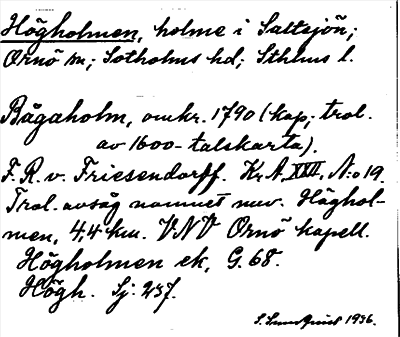 Högholmen, holme i Saltsjön;
Ornö sn; Sotholms hd; Sthlms l.
Bågaholm, omkr. 1790 (kop; trol.
av 1600-talskarta).
F. R. v. Friesendorff. Kr A, XXII, No 19.
Trol. avsåg namnet nuv. Höghol-
men, 4,4 km. VNV Ornö kapell.
Högholmen ek, G. 68.
Högh. Sj. 237.
S. Sundquist 1936.